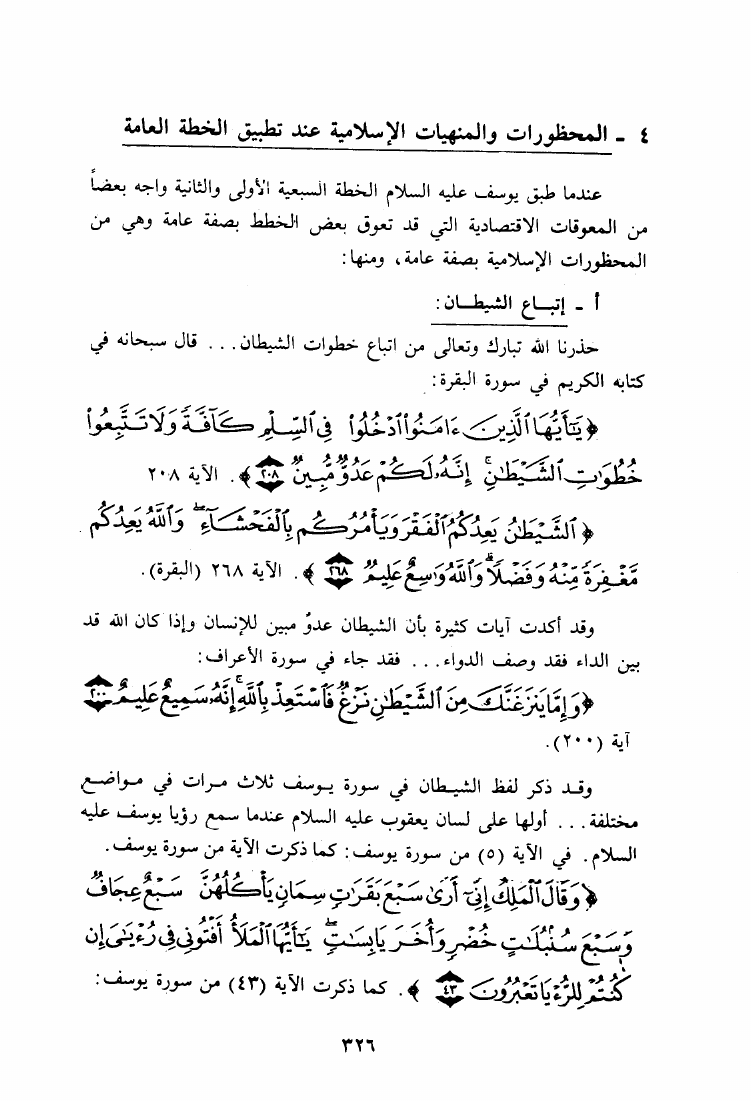 ٤ - المحظورات والمنهيات الإسلامية عند تطبيق الخطة العامة
عندما طبق يوسف عليه السلام الخطة السبعية الأولى والثانية واجه بعضاً
من المعوقات الاقتصادية التي قد تعوق بعض الخطط بصفة عامة وهي من
المحظورات الإسلامية بصفة عامة، ومنها:
أ - إتبـاع الشيطـان:
حذرنا الله تبارك وتعالى من اتباع خطوات الشيطان... قال سبحانه في
كتابه الكريم في سورة البقرة:
﴿يَٰٓأَيُّهَا ٱلَّذِينَ ءَامَنُوا۟ ٱدْخُلُوا۟ فِى ٱلسِّلْمِ كَآفَّةً وَلَا تَتَّبِعُوا۟
خُطُوَٰتِ ٱلشَّيْطَٰنِ ۚ إِنَّهُۥ لَكُمْ عَدُوٌّ مُّبِينٌ ٢٠٨﴾. الآية ٢٠٨
﴿ٱلشَّيْطَٰنُ يَعِدُكُمُ ٱلْفَقْرَ وَيَأْمُرُكُم بِٱلْفَحْشَآءِ ۖ وَٱللَّهُ يَعِدُكُم
مَّغْفِرَةً مِّنْهُ وَفَضْلًا ۗ وَٱللَّهُ وَٰسِعٌ عَلِيمٌ ٢٦٨﴾. الآية ٢٦٨ (البقرة).
وقد أكدت آيات كثيرة بأن الشيطان عدوٌ مبين للإنسان وإذا كان الله قد
بين الداء فقد وصف الدواء... فقد جاء في سورة الأعراف:
﴿وَإِمَّا يَنزَغَنَّكَ مِنَ ٱلشَّيْطَٰنِ نَزْغٌ فَٱسْتَعِذْ بِٱللَّهِ ۚ إِنَّهُۥ سَمِيعٌ عَلِيمٌ ٢٠٠
آية (٢٠٠).
وقـد ذكر لفظ الشيـطان في سورة يـوسف ثلاث مـرات في مـواضـع
مختلفة... أولها على لسان يعقوب عليه السلام عندما سمع رؤيا يوسف عليه
السلام. في الآية (٥) من سورة يوسف: كما ذكرت الآية من سورة يوسف.
﴿وَقَالَ ٱلْمَلِكُ إِنِّىٓ أَرَىٰ سَبْعَ بَقَرَٰتٍ سِمَانٍ يَأْكُلُهُنَّ سَبْعٌ عِجَافٌ
وَسَبْعَ سُنۢبُلَٰتٍ خُضْرٍ وَأُخَرَ يَابِسَٰتٍ ۖ يَٰٓأَيُّهَا ٱلْمَلَأُ أَفْتُونِى فِى رُءْيَٰىَ إِن
كُنتُمْ لِلرُّءْيَا تَعْبُرُونَ ٤٣﴾. كما ذكرت الآية (٤٣) من سورة يوسف:
٣٢٦